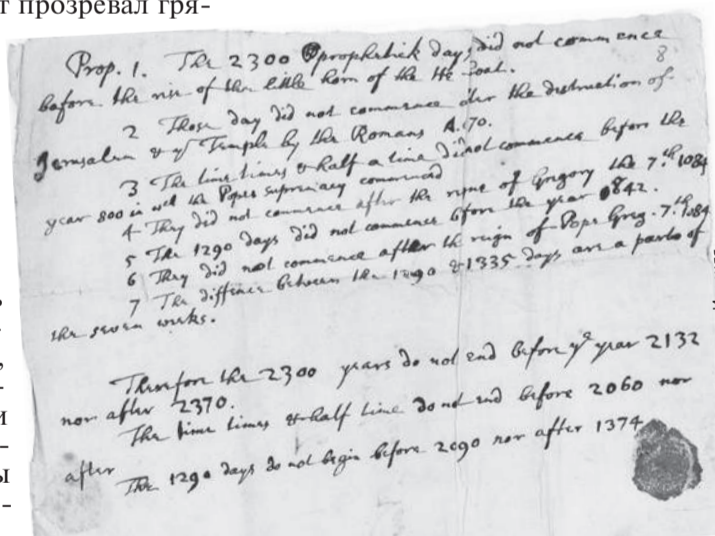 т прозревал гря-
Prop. 1. The 2300 prophetick days did not commence
before the rise of the little horn of the He Goat.
8
2 Those day did not commence after the destruction of
Jerusalem & ye Temple by the Romans A. 70.
3 The time times & half a time did not commence before the
year 800 in wch the Popes supremacy commenced
4 They did not commence after the reigne of Gregory the 7th. 1084
5 The 1290 days did not commence before the year 842.
6 They did not commence after the reign of Pope Greg. 7th. 1084
7 The diffence between the 1290 & 1335 days are a parts of
the seven weeks.
Therefore the 2300 years do not end before ye year 2132
nor after 2370.
The time times & half time do not end before 2060 nor
after
The 1290 days do not begin before 2090 nor after 1374
и
ы